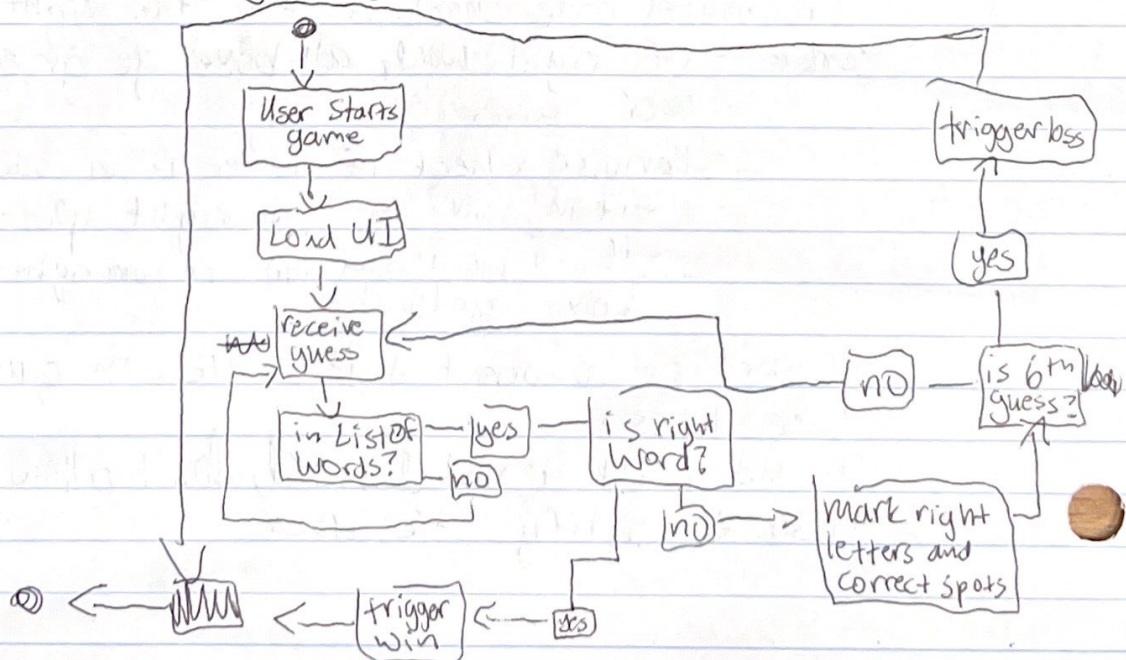 User Starts
game
Load UI
receive
guess
in List Of
words?
yes
no
is right
word?
no
yes
trigger
win
mark right
letters and
correct spots
is 6th
guess?
no
yes
trigger loss